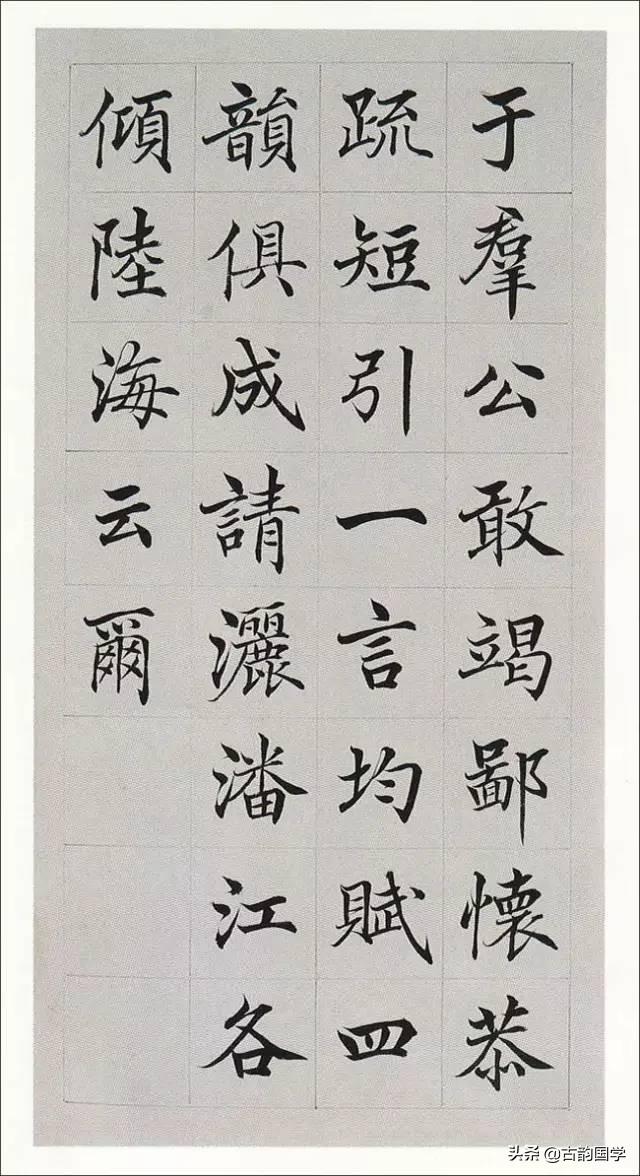 于羣公敢竭鄙懷恭
疏短引一言均賦四
韻俱成請灑潘江各
傾陸海云爾
头条 @古韵国学